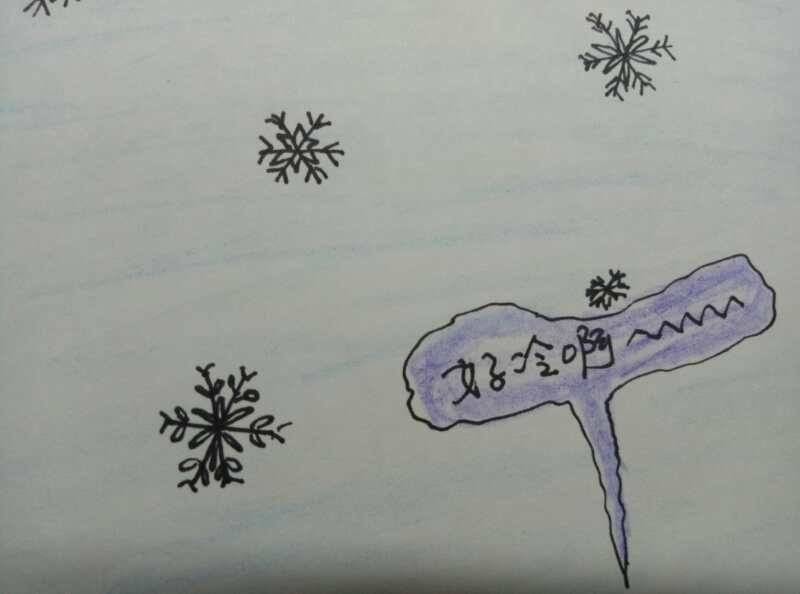 好冷啊~~~~~